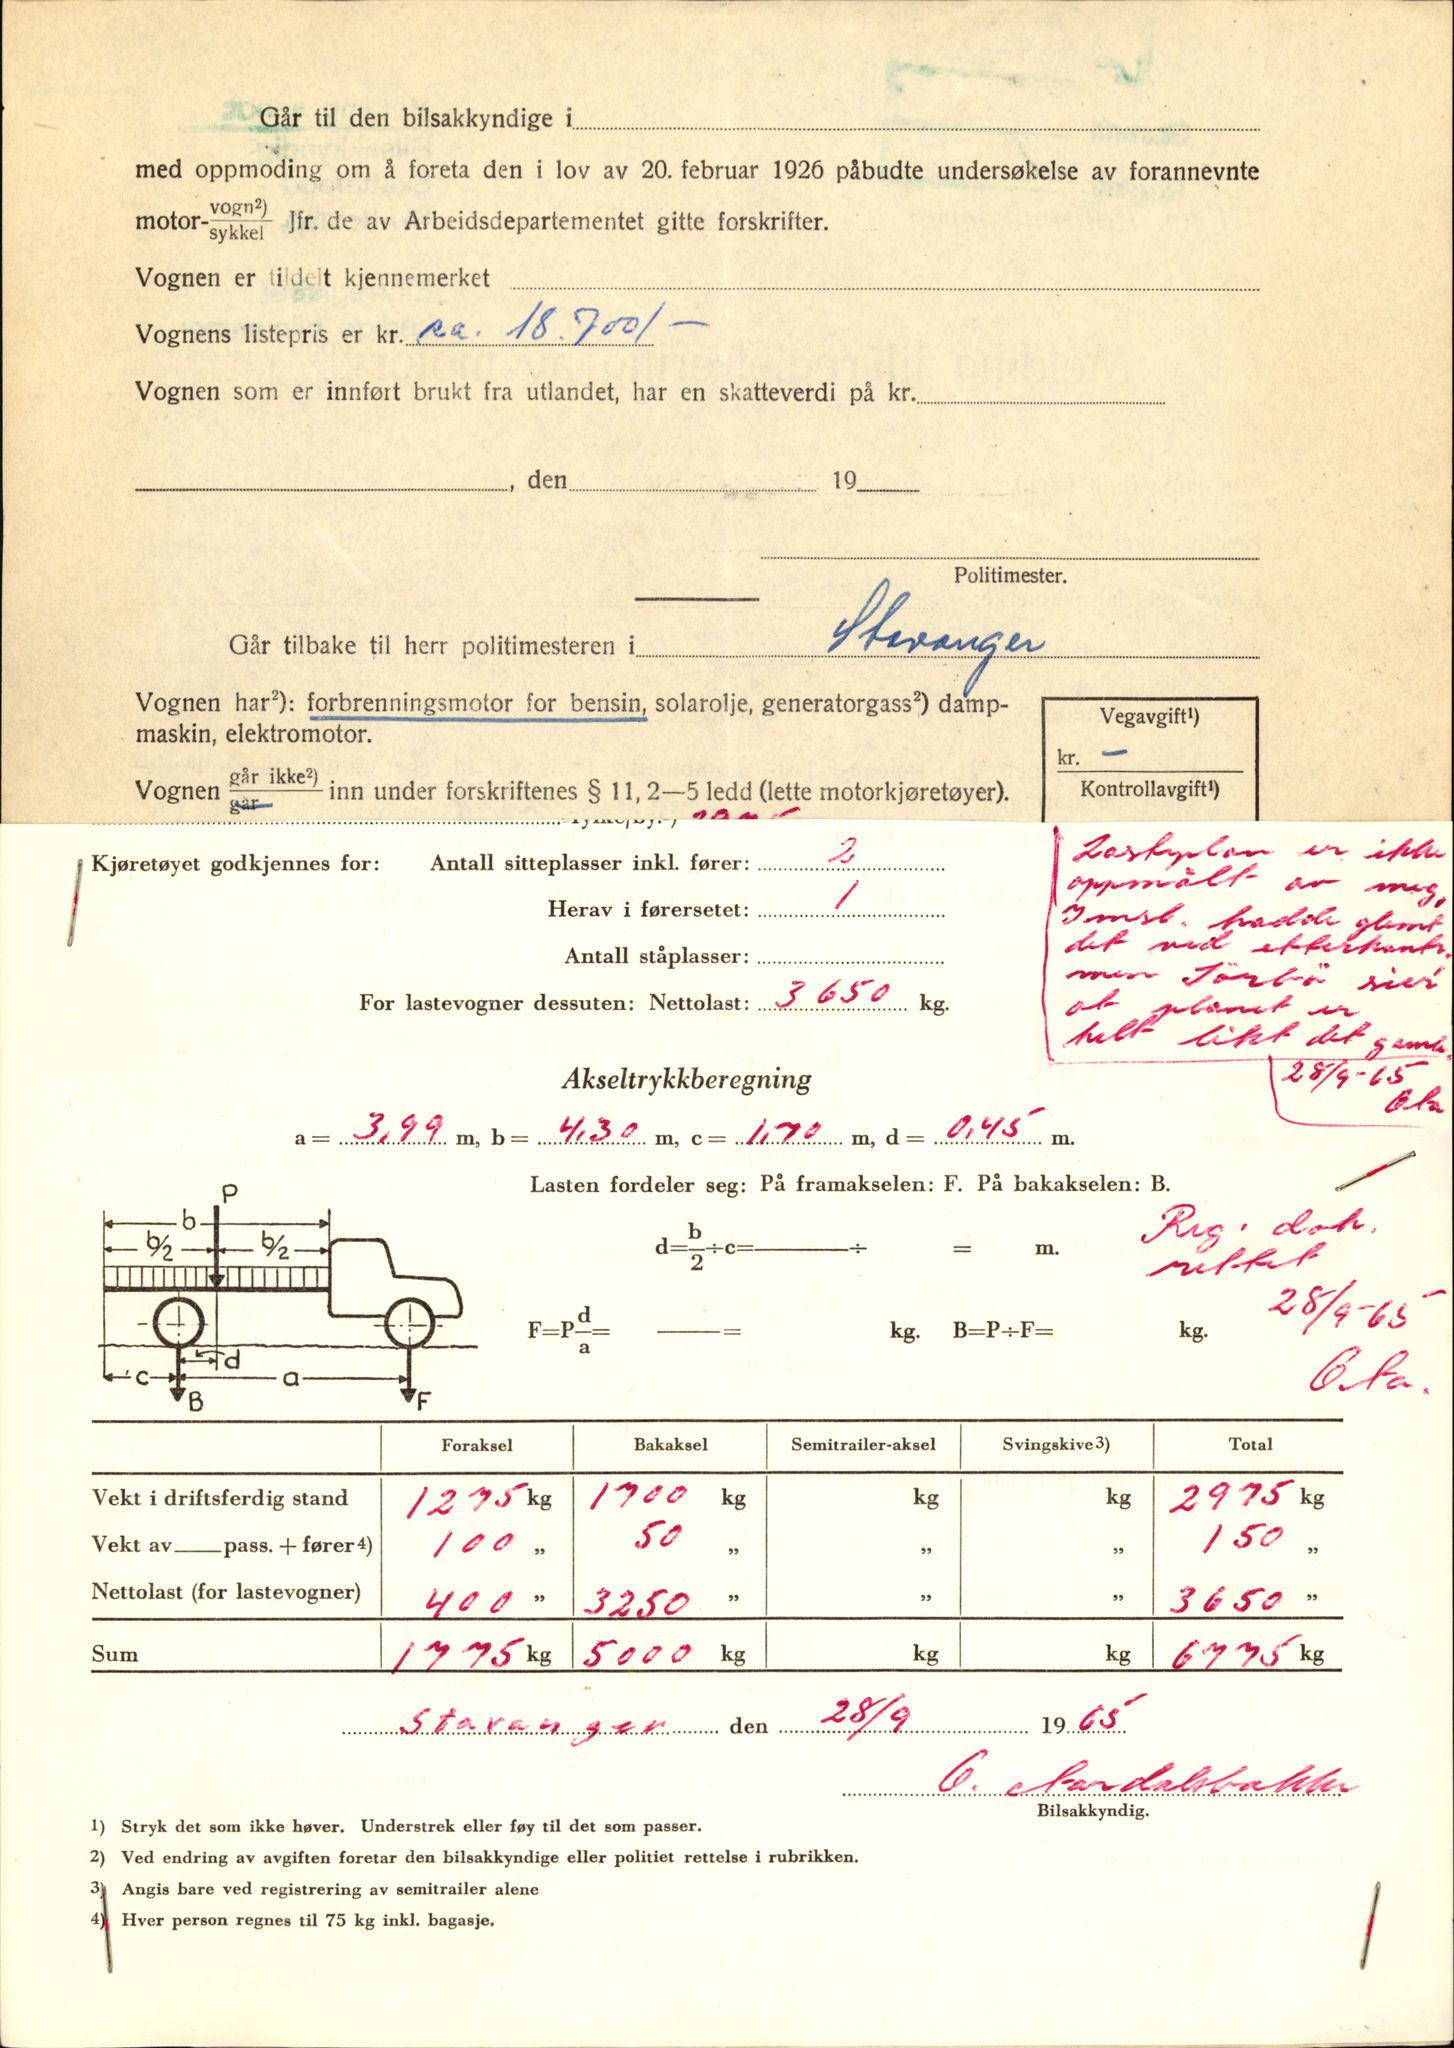 Går til den bilsakkyndige i
med oppmoding om å foreta den i lov av 20. februar 1926 påbudte undersøkelse av forannevnte
motor-vogn²)/sykkel Jfr. de av Arbeidsdepartementet gitte forskrifter.
Vognen er tildelt kjennemerket
Vognens listepris er kr. ca. 18.700/-
Vognen som er innført brukt fra utlandet, har en skatteverdi på kr.
, den 19
Politimester.
Går tilbake til herr politimesteren i Stavanger
Vognen har²): forbrenningsmotor for bensin, solarolje, generatorgass²) damp-
maskin, elektromotor.
Vognen går ikke²)/går inn under forskriftenes § 11, 2—5 ledd (lette motorkjøretøyer).
Vegavgift¹)
kr. —
Kontrollavgift¹)
Kjøretøyet godkjennes for: Antall sitteplasser inkl. fører: 2
Herav i førersetet: 1
Antall ståplasser:
For lastevogner dessuten: Nettolast: 3650 kg.
Lasteplan er ikke
oppmålt av meg,
hadde glemt
det ved etterkontr.
men sier
at planet er
helt likt det gamle.
28/9-65
Akseltrykkberegning
a = 3,99 m, b = 4,30 m, c = 1,70 m, d = 0,45 m.
Lasten fordeler seg: På framakselen: F. På bakakselen: B.
P
b
b/2 b/2
c d a
B F
d=b/2÷c= ÷ = m.
F=P d/a= = kg. B=P÷F= kg.
Reg. dok.
rettet
28/9-65
Foraksel Bakaksel Semitrailer-aksel Svingskive3) Total
Vekt i driftsferdig stand 1275 kg 1700 kg kg kg 2975 kg
Vekt av pass. + fører4) 100 „ 50 „ „ „ 150 „
Nettolast (for lastevogner) 400 „ 3250 „ „ „ 3650 „
Sum 1775 kg 5000 kg kg kg 6775 kg
Stavanger den 28/9 1965
Bilsakkyndig.
1) Stryk det som ikke høver. Understrek eller føy til det som passer.
2) Ved endring av avgiften foretar den bilsakkyndige eller politiet rettelse i rubrikken.
3) Angis bare ved registrering av semitrailer alene
4) Hver person regnes til 75 kg inkl. bagasje.